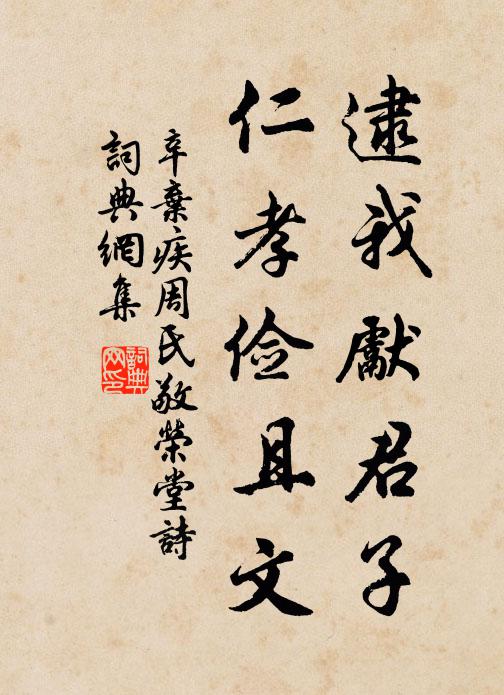 逮我獻君子
仁孝儉且文
辛棄疾周氏敬榮堂詩
詞典網集
詞典
网印